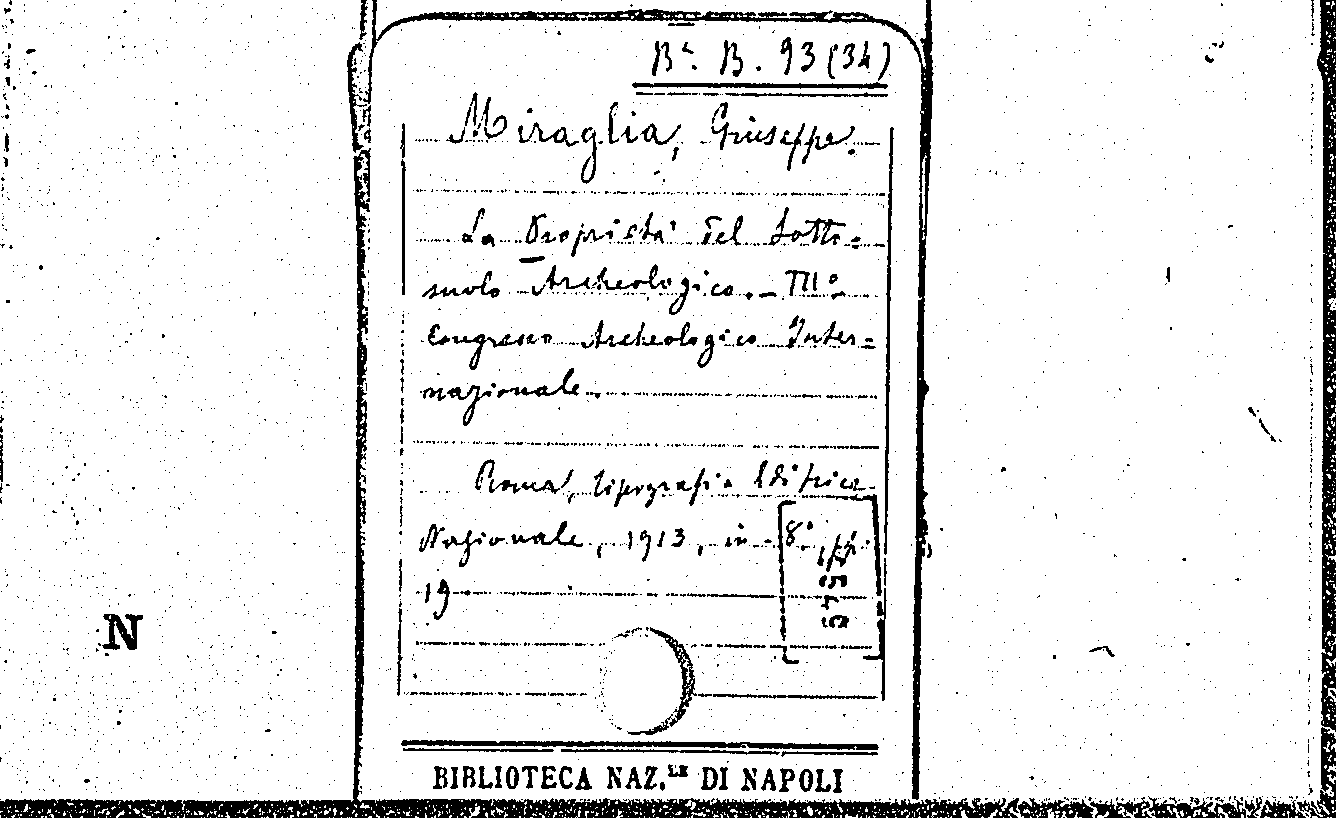 Bª. B. 93 (34)
Miraglia, Giuseppe.
La Proprietà del Sotto=
suolo Archeologico. - III°
Congresso Archeologico Inter=
nazionale.
Roma, tipografia Editrice
Nazionale, 1913, in 8°, pp.
19
N
BIBLIOTECA NAZ.LE DI NAPOLI